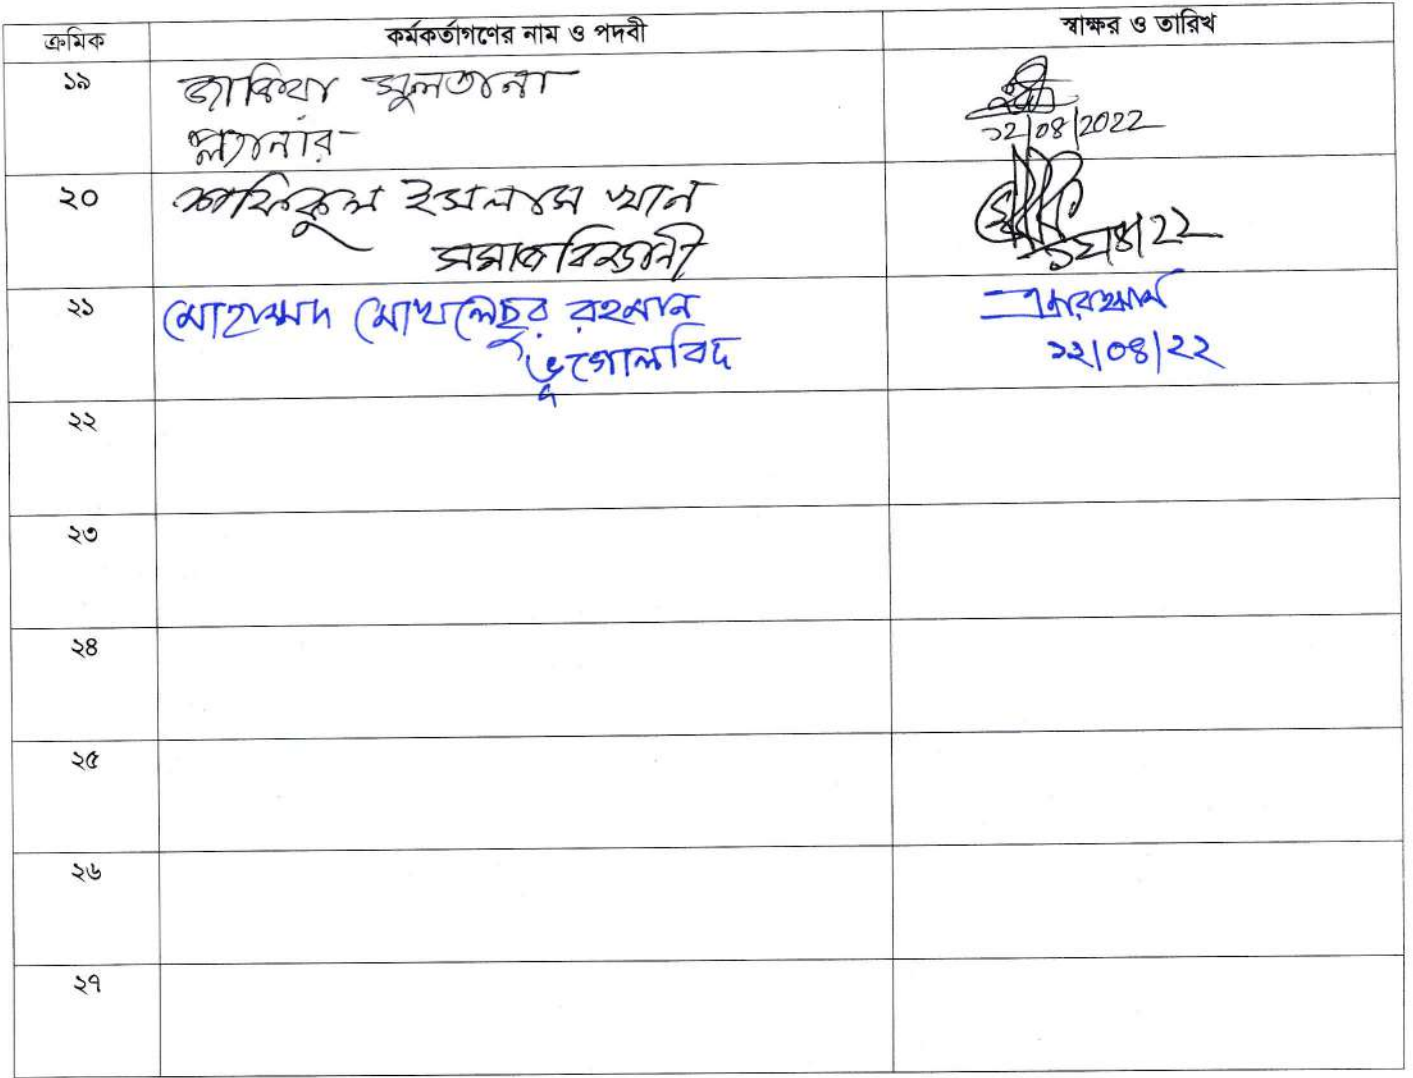 ক্রমিক কর্মকর্তাগণের নাম ও পদবী স্বাক্ষর ও তারিখ
১৯ জাকিয়া সুলতানা
প্ল্যানার ১২/০৪/2022
২০ শফিকুল ইসলাম খান
সমাজবিজ্ঞানী ১২/৪/22
২১ মোহাম্মদ মোখলেছুর রহমান
ভূগোলবিদ ১২/০৪/২২
২২
২৩
২৪
২৫
২৬
২৭